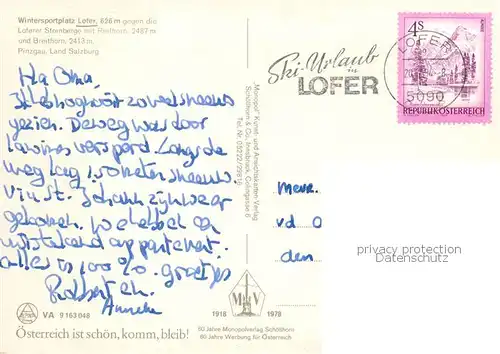 Wintersportplatz Lofer, 626 m gegen die
Loferer Steinberge mit Reifhorn, 2487 m
und Breithorn, 2413 m
Pinzgau, Land Salzburg
Ha Oma,
sneeuw
gezien. De weg was door
lawines versperd. Langs de
weg lag 1,5 meter sneeuw.
Via St. Johann zijn we er
gekomen. We hebben een
uitstekend appartement.
Alles is 100%. groetjes
Robbert en
Anneke
VA 9 163 048
Österreich ist schön, komm, bleib!
"Monopol" Kunst- und Ansichtskarten-Verlag
Schöllhorn & Co., Innsbruck, Colingasse 6
Tel. Nr. 05222/29819
MV
1918 1978
60 Jahre Monopolverlag Schöllhorn
60 Jahre Werbung für Österreich
Ski-Urlaub
in
LOFER
LOFER
5090
4S
REPUBLIK ÖSTERREICH
Mevr.
vd
den
privacy protection
Datenschutz